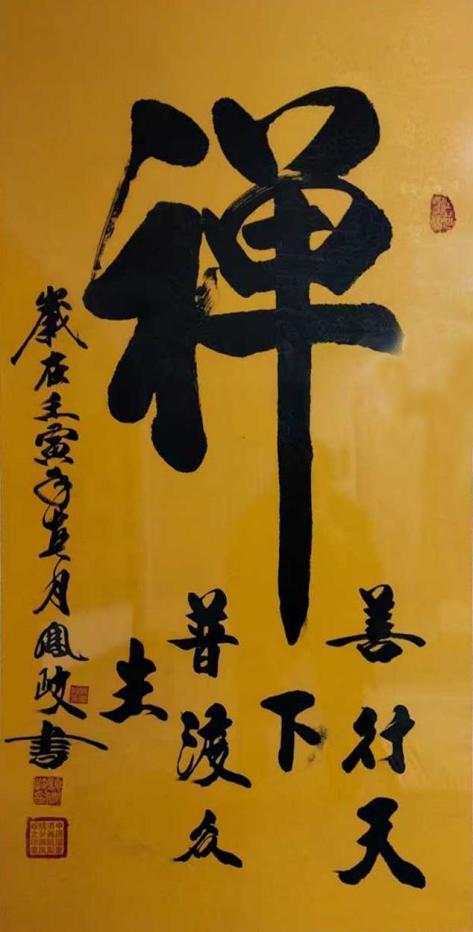 禅
善行天
下
普渡众
生
歲在壬寅年月鳳書